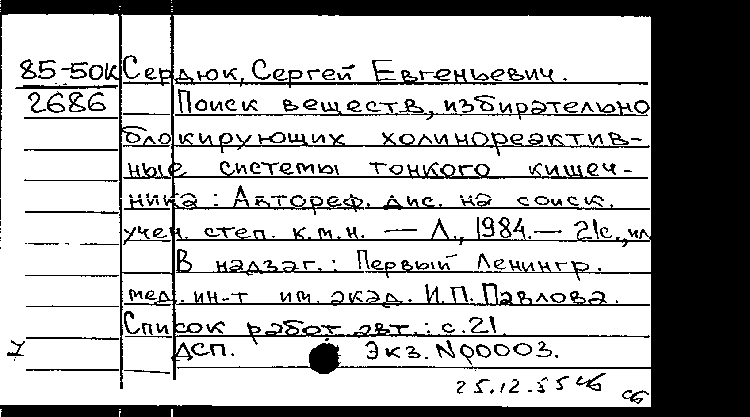 85-50к Сердюк, Сергей Евгеньевич.
2686 Поиск веществ, избирательно
блокирующих холинореактив-
ные системы тонкого кишеч-
ника : Автореф. дис. на соиск.
учен. степ. к.м.н. — Л., 1984.— 21с., ил
В надзаг.: Первый Ленингр.
мед. ин-т им. акад. И.П. Павлова.
Список работ авт.: с.21.
ДСП. Экз. N00003.
25.12.